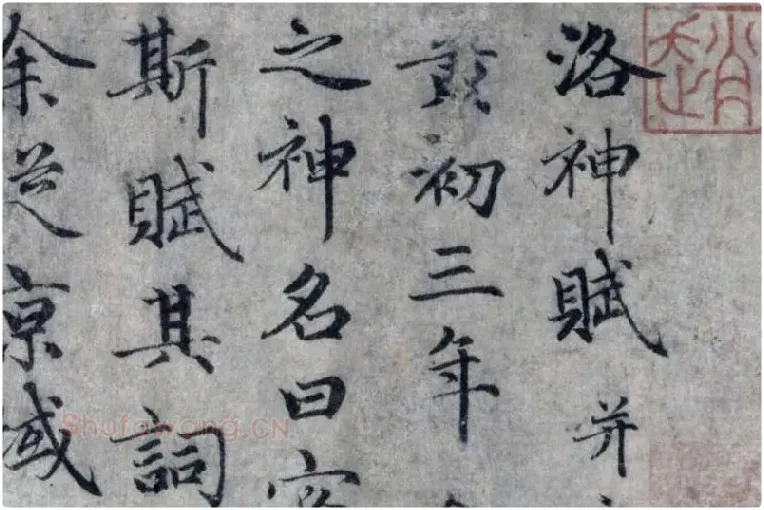 趙
洛神賦并
黃初三年
之神名曰宓
斯賦其詞
余從京域
Shufawang.CN